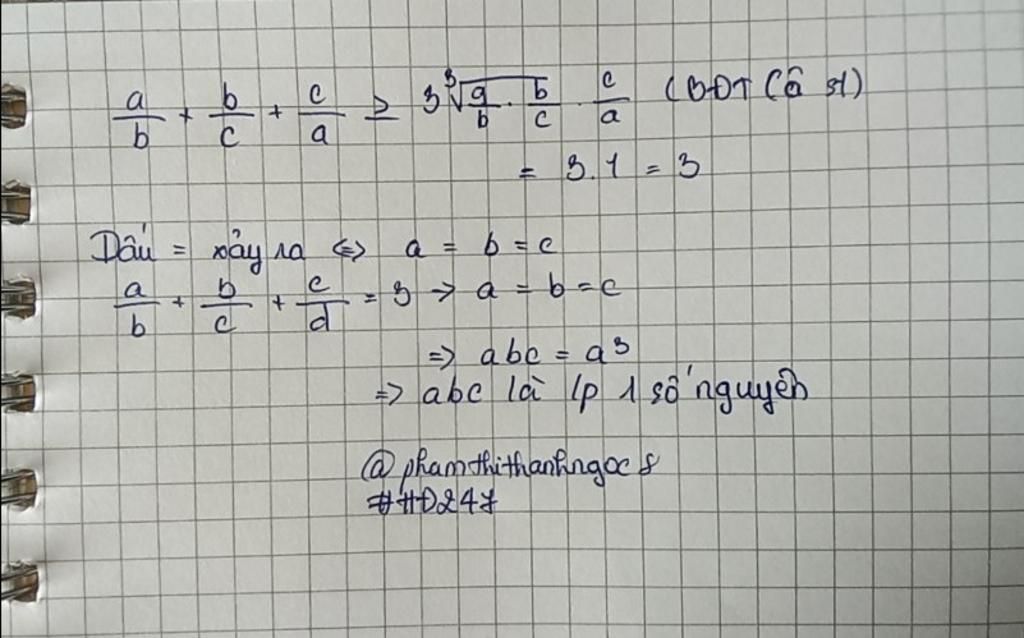 a/b + b/c + c/a ≥ 3∛(a/b . b/c . c/a) (BĐT Cô si)
= 3.1 = 3
Dấu = xảy ra <=> a = b = c
a/b + b/c + c/d = 3 -> a = b = c
=> abc = a³
=> abc là lp 1 số nguyên
@phamthithanhngoc8
#HD247